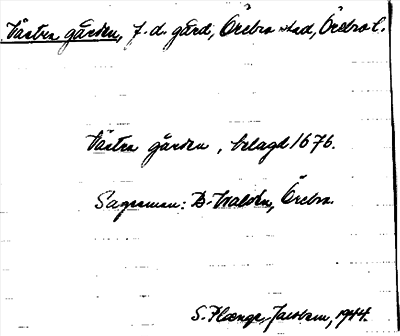 Västra gården, f.d. gård, Örebro stad, Örebro l.
Västra gården, belagd 1676.
Sagesman: B. Waldén, Örebro.
S. Flænge-Jacobson, 1944.